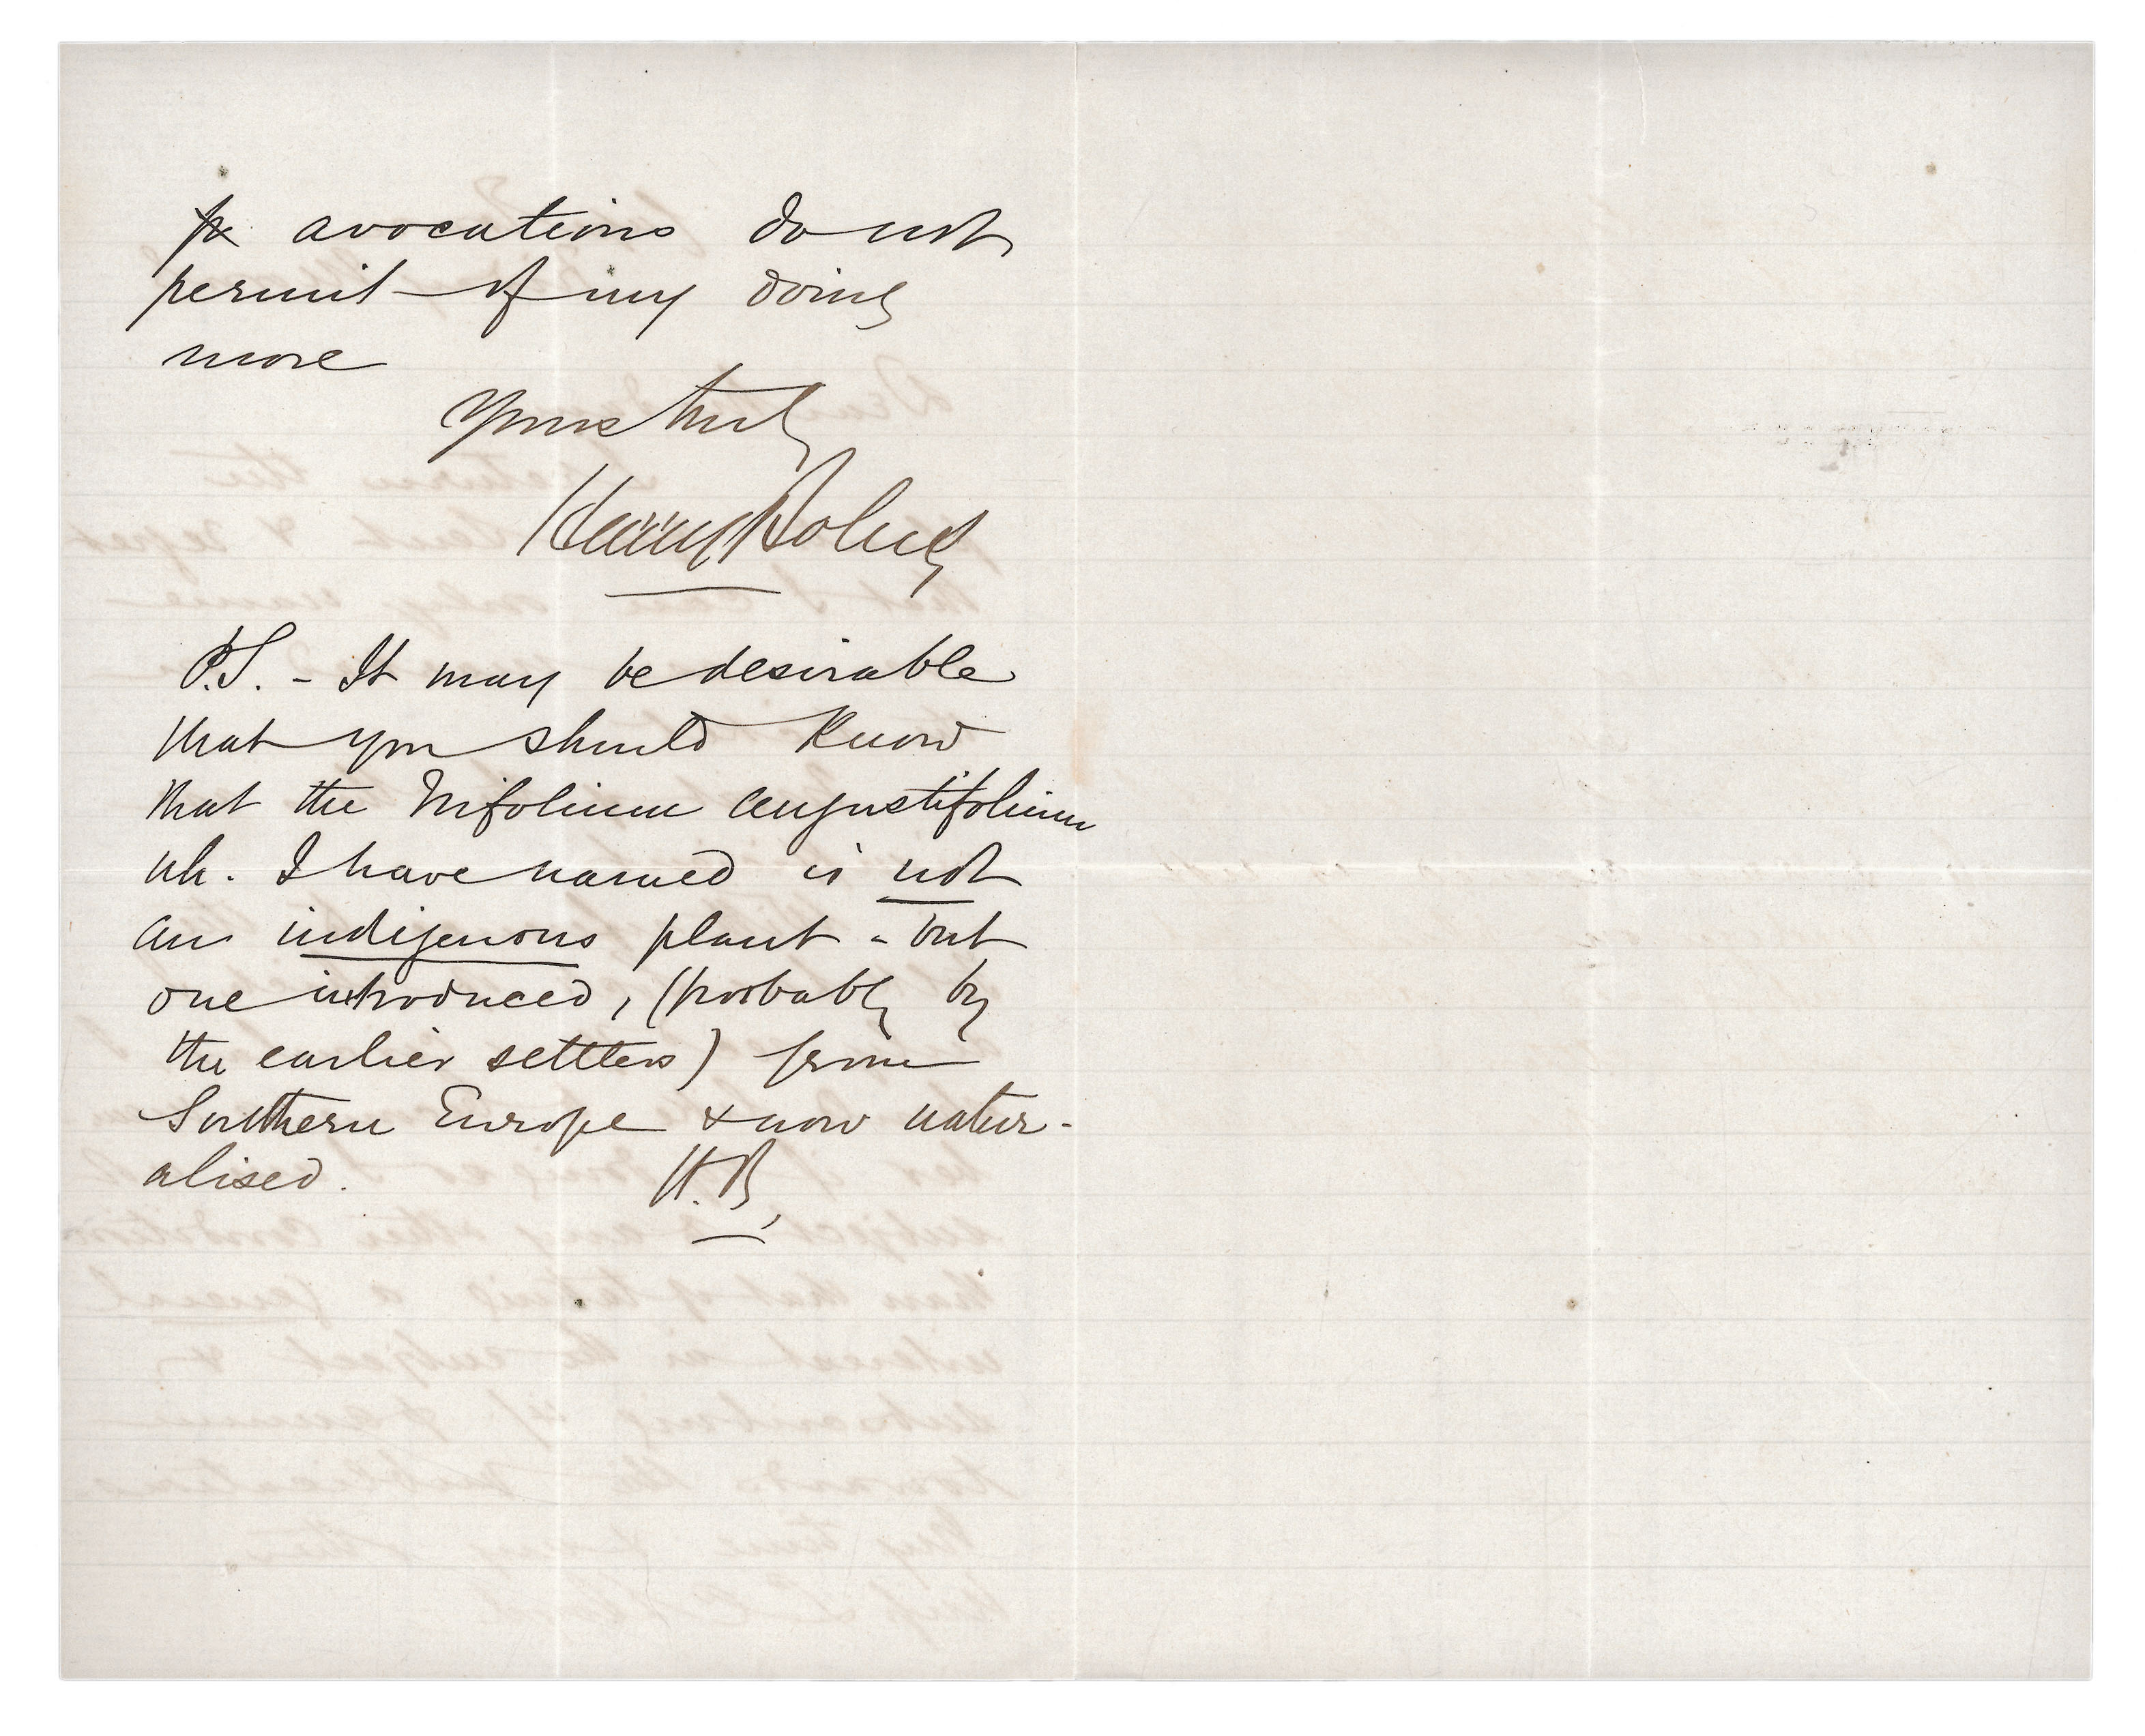 avocations do not
permit of my doing
more
Yours truly
Harry Bolus
P.S. - It may be desirable
that you should know
that the Trifolium angustifolium
wh. I have named is not
an indigenous plant - but
one introduced, (probably by
the earlier settlers) from
Southern Europe & now natur-
alised. H.B.